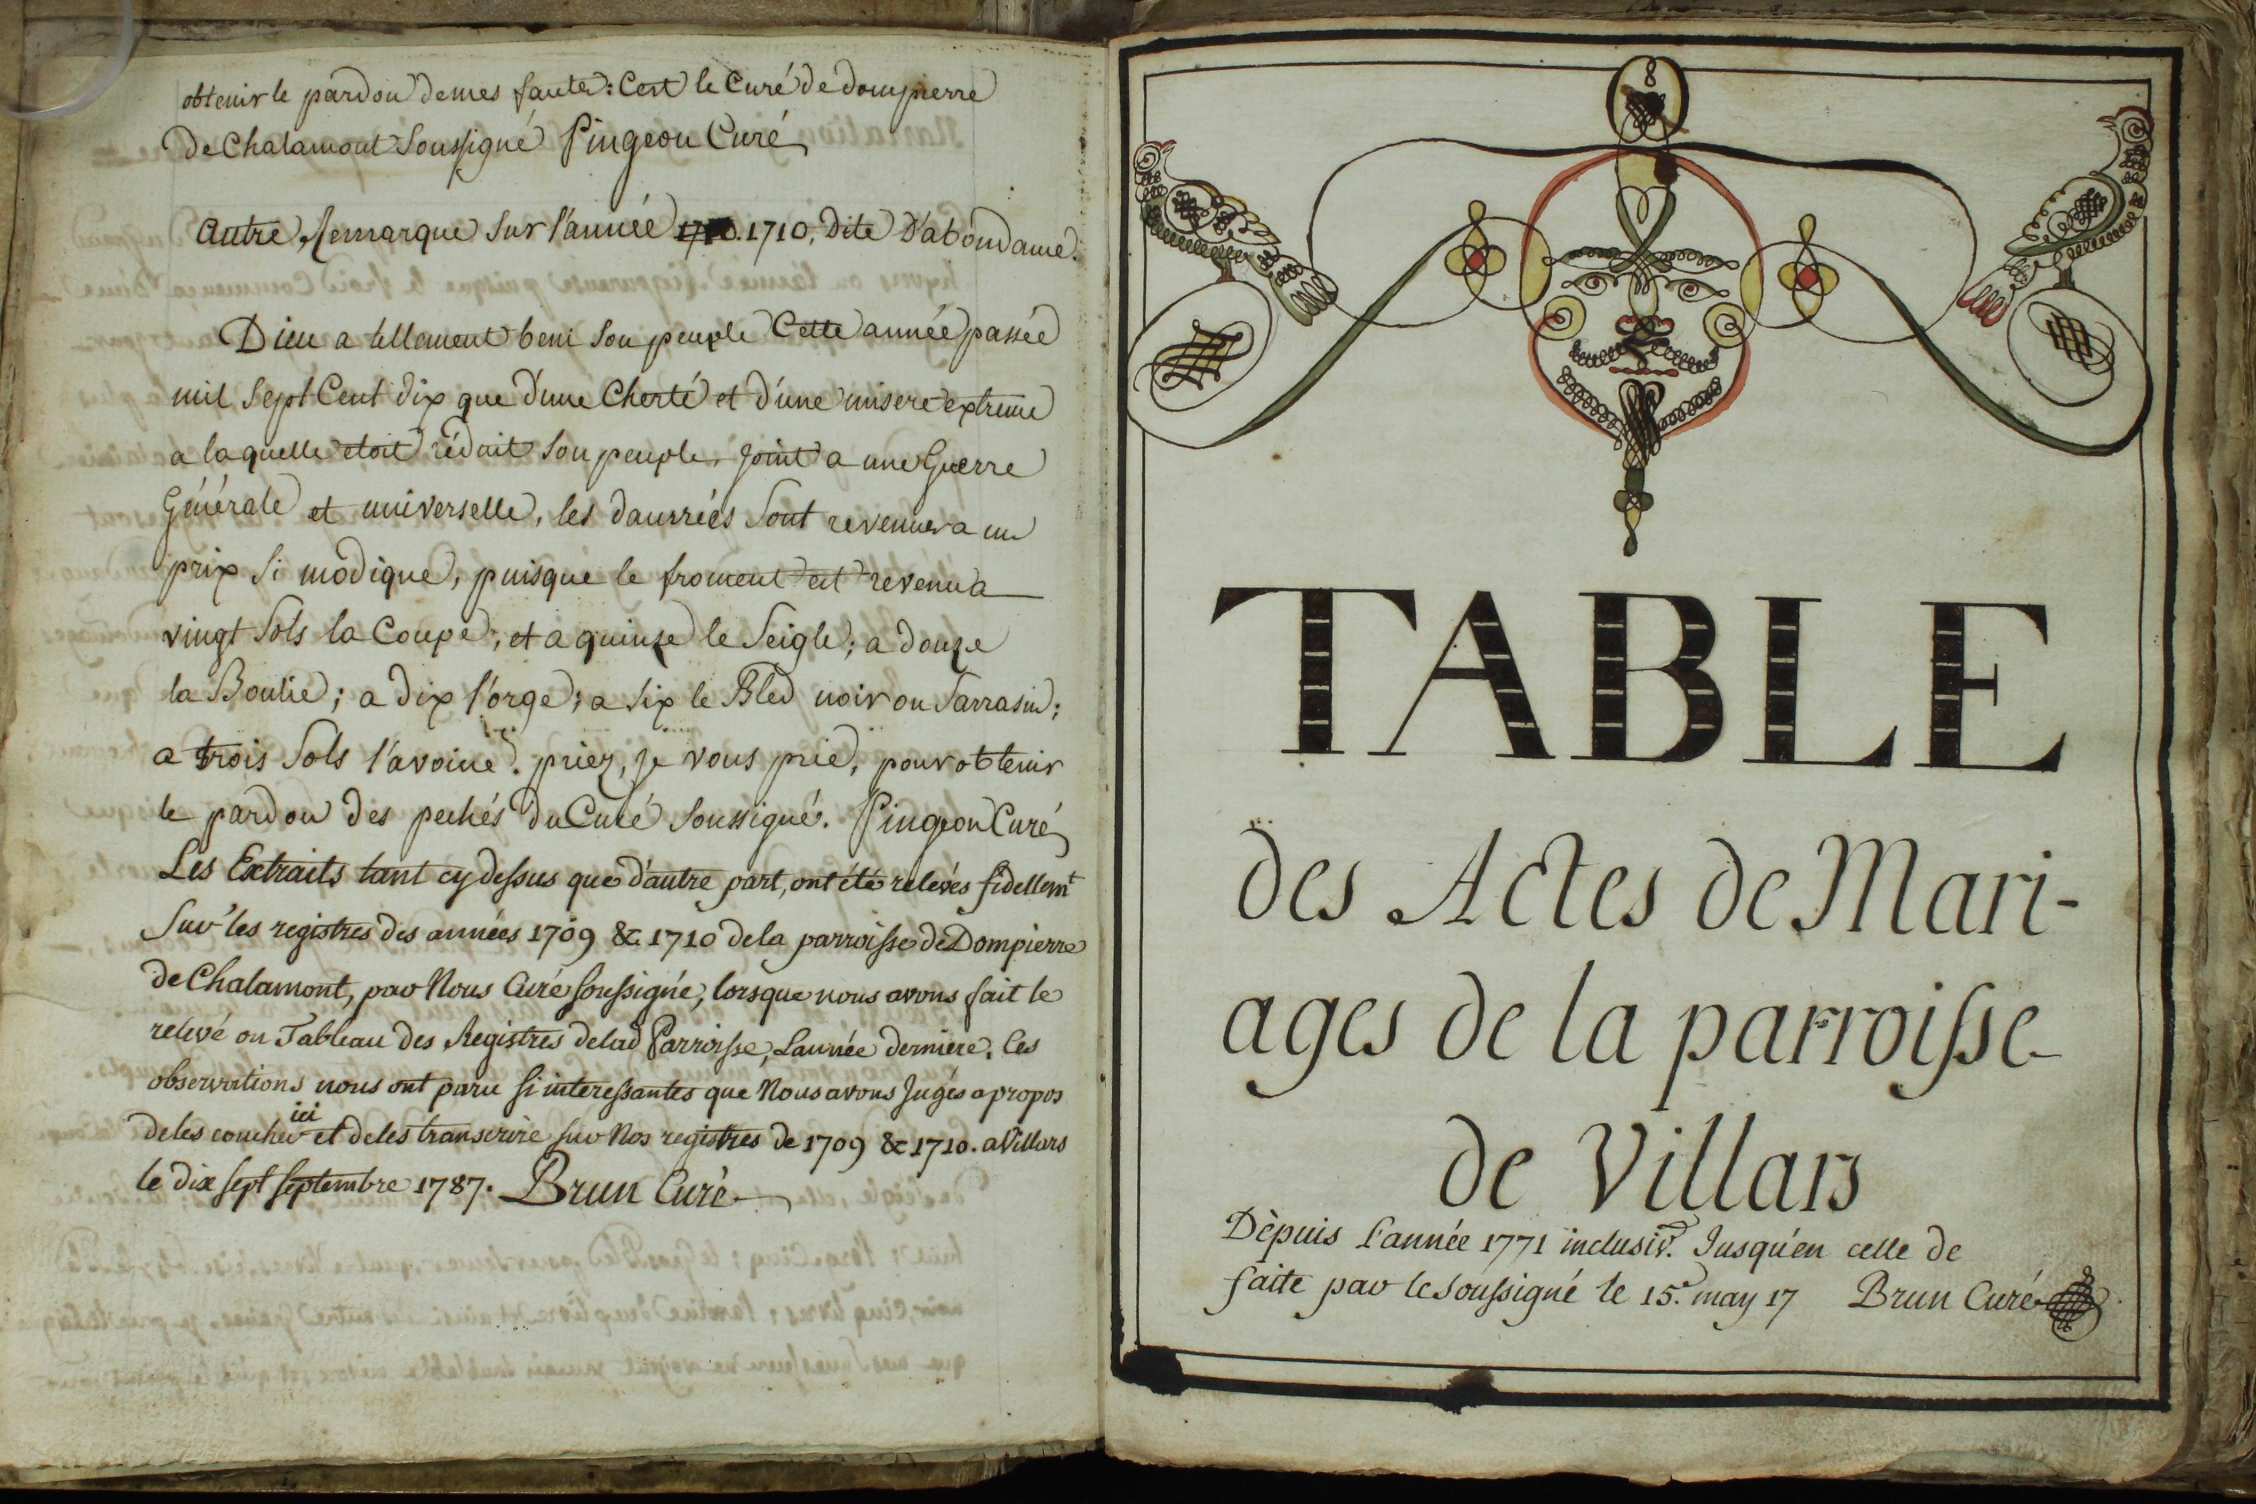 obtenir le pardon de mes fautes: C'est le Curé de dompierre
de Chalamont Soussigné Pingeon Curé
Autre Remarque sur l'année 1710. 1710, Dite D'abondance.
Dieu a tellement beni son peuple Cette année passée
mil sept Cent dix que d'une Cherté et d'une misere extreme
a laquelle etoit réduit son peuple, joint a une Guerre
Générale et universelle, les danrrées sont revenues a un
prix si modique, puisque le froment est revenu a
vingt sols la Coupe; et a quinze le Seigle; a douze
la Boulie; a dix l'orge; a six le Bled noir ou Sarrasin;
a trois sols l'avoine. priez, je vous prie, pour obtenir
le pardon des pechés du Curé soussigné. Pingeon Curé
Les Extraits tant cy dessus que d'autre part, ont été relevés fidellemt
sur les registres des années 1709 & 1710 de la parroisse de Dompierre
de Chalamont, par Nous Curé soussigné, lorsque nous avons fait le
relevé ou Tableau des Registres de lad Parroisse, l'année derniere. Ces
observations nous ont paru si interessantes que Nous avons Jugés a propos
de les coucher ici et de les transcrire sur Nos registres de 1709 & 1710. a Villars
le dix sept septembre 1787. Brun Curé
8
TABLE
des Actes de Mari-
ages de la parroisse
de Villars
Dèpuis L'année 1771 inclusiv. Jusqu'en celle de
faite par le soussigné le 15.e may 17 Brun Curé